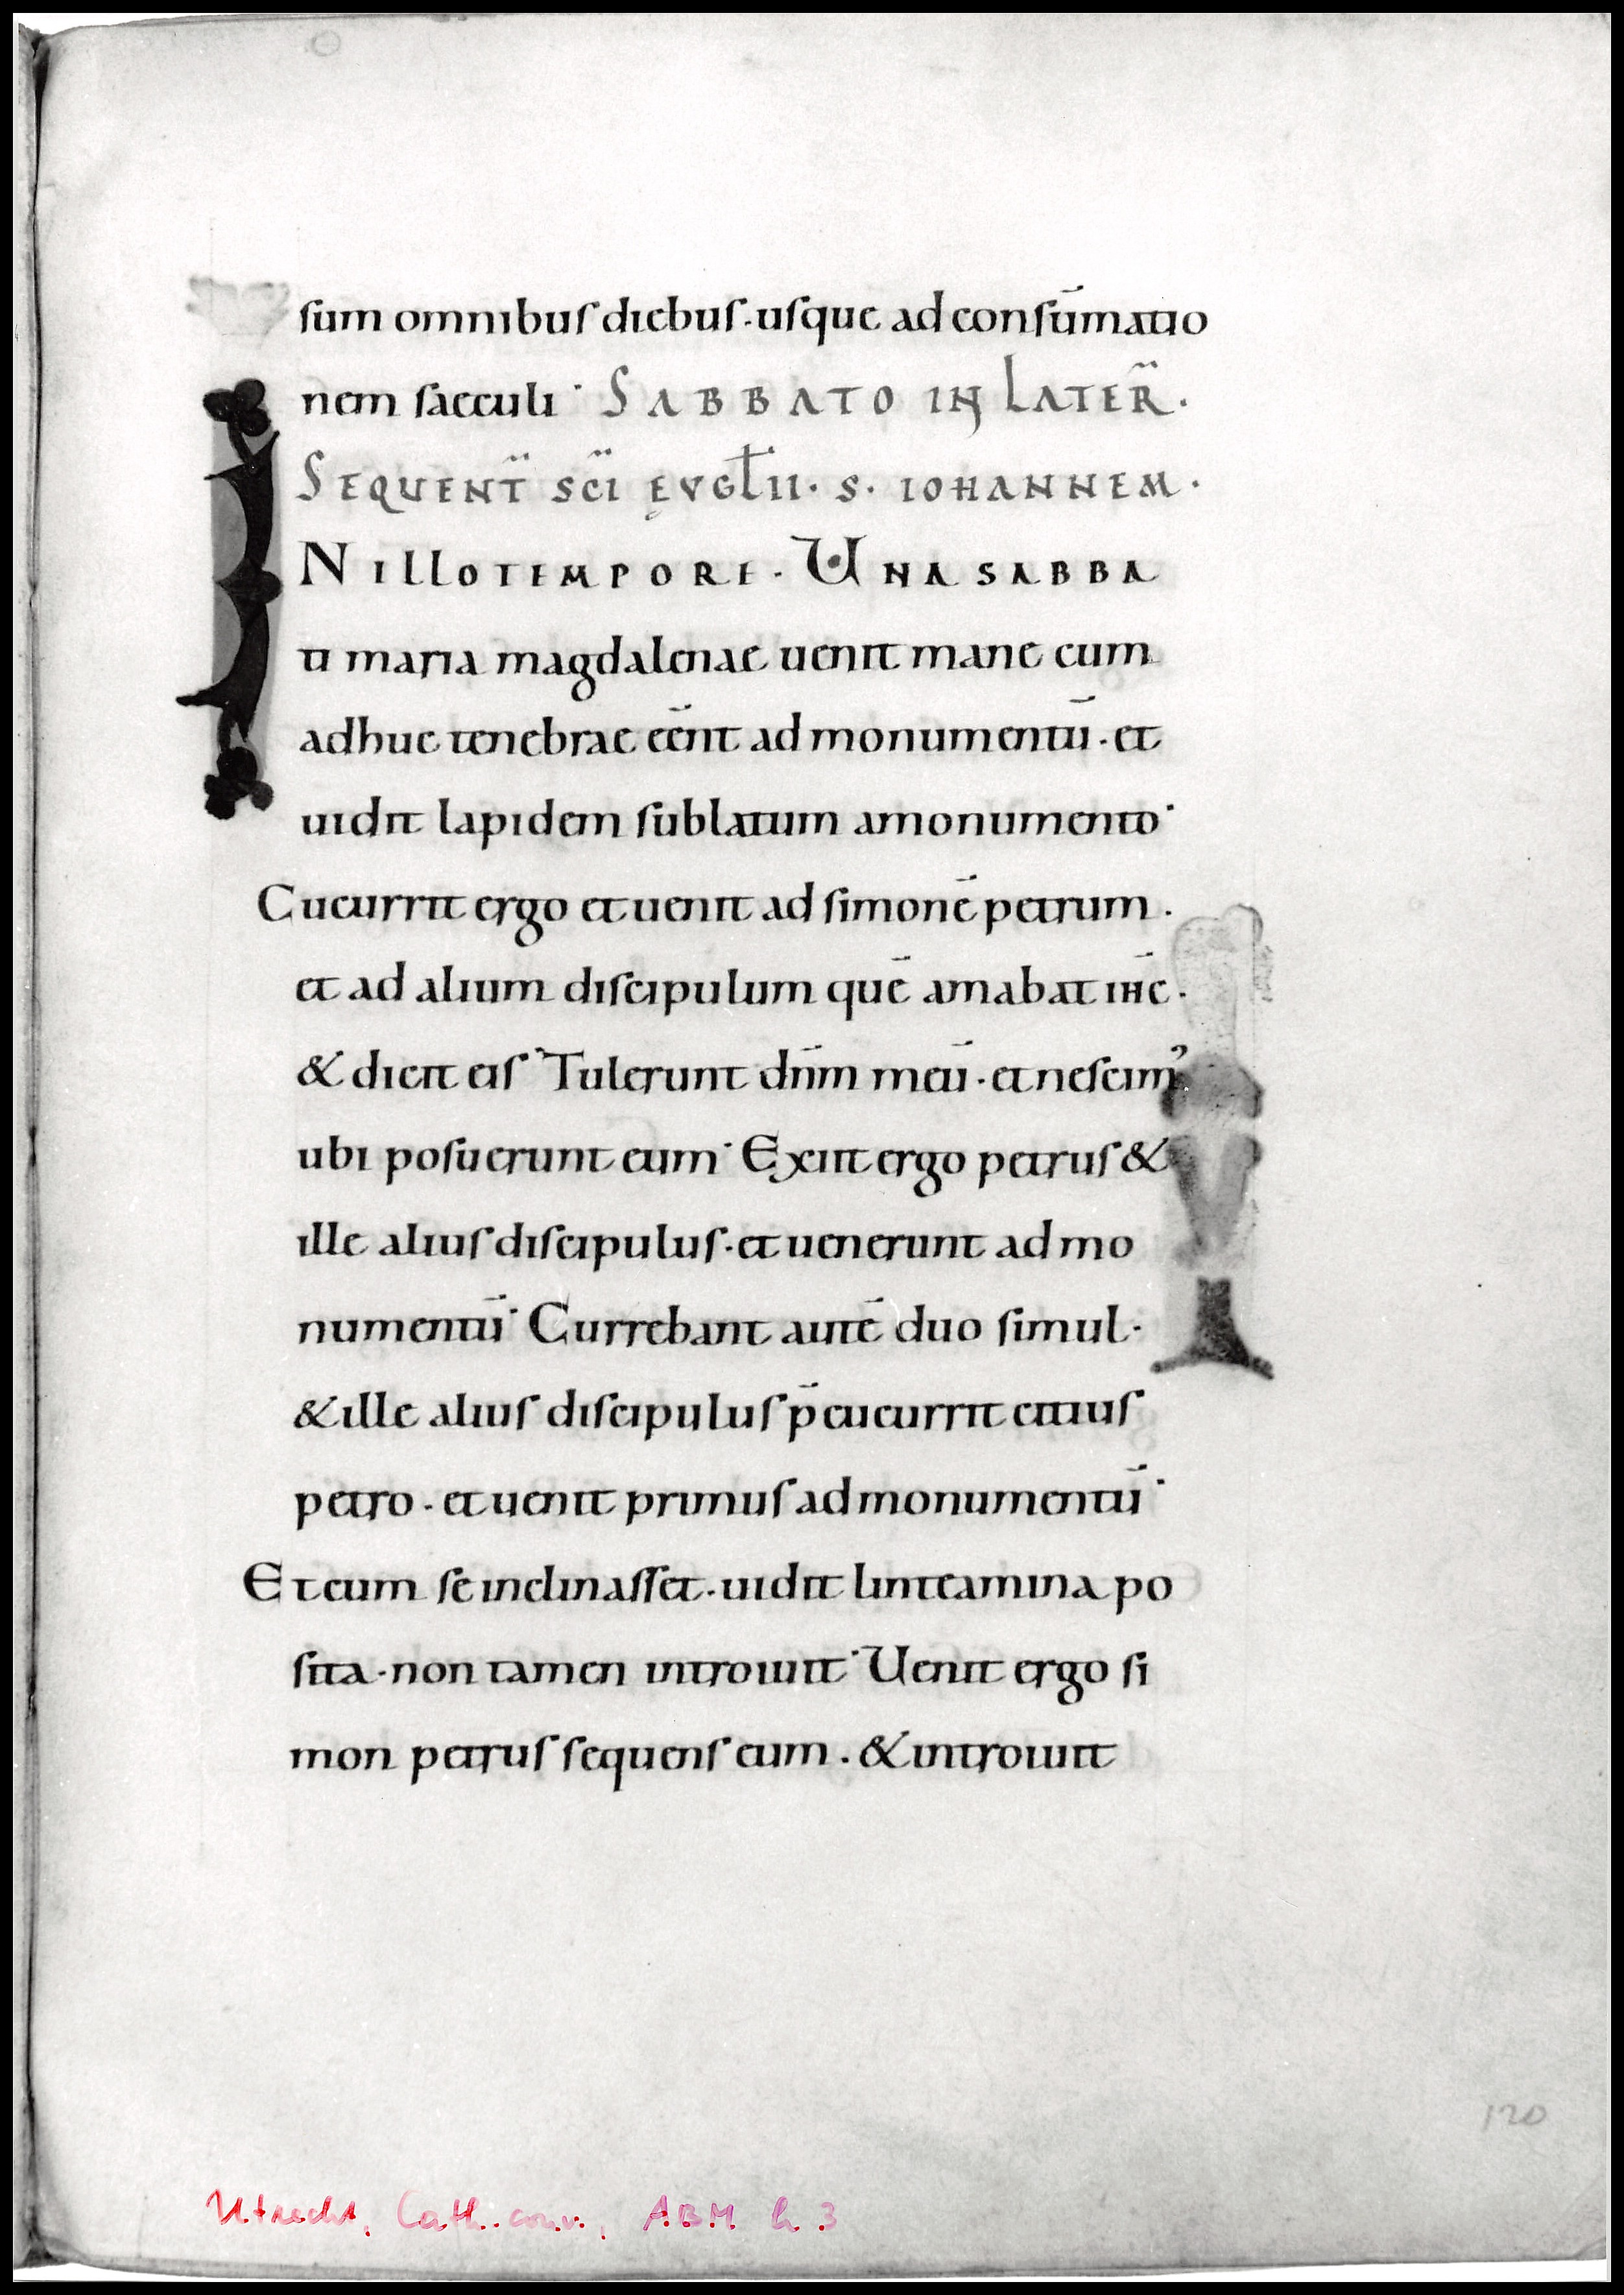 sum omnibus diebus· usque ad consūmatio
nem saeculi· SABBATO IN LATER̄.
SEQUENT̄ SC̄I EVGLII· S· IOHANNEM·
IN ILLO TEMPORE· UNA SABBA
ti maria magdalenae uenit mane cum
adhuc tenebrae eēnt ad monumentū· et
uidit lapidem sublatum a monumento·
Cucurrit ergo et uenit ad simonē petrum·
et ad alium discipulum quē amabat ihc̄·
& dicit eis· Tulerunt dn̄m meū· et nescim᾿
ubi posuerunt eum· Exiit ergo petrus &
ille alius discipulus· et uenerunt ad mo
numentū· Currebant autē duo simul·
& ille alius discipulus p̄cucurrit citius
petro· et uenit primus ad monumentū·
Et cum se inclinasset· uidit linteamina po
sita· non tamen introiuit· Uenit ergo si
mon petrus sequens eum· & introiuit
120
Utrecht, Cath. conv., ABM h. 3